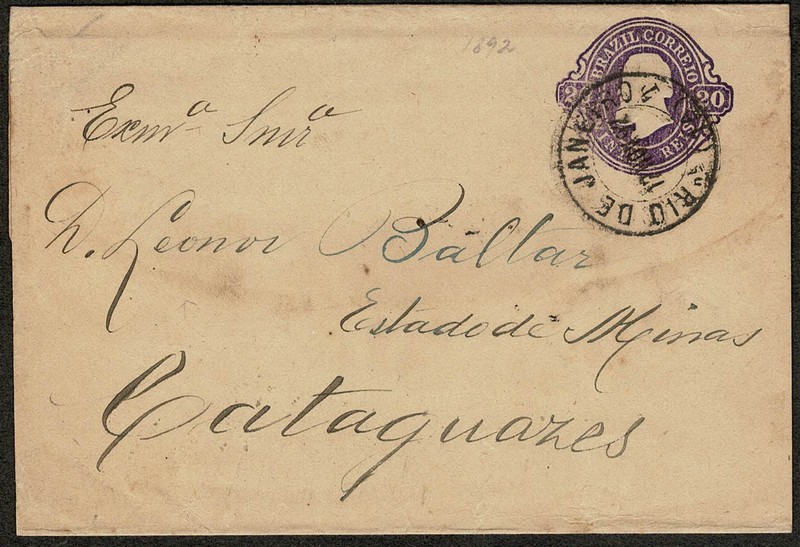 1892
BRAZIL CORREIO
20
REIS
RIO DE JANEIRO
Exmª Snrª
D. Leonor Baltar
Estado de Minas
Cataguazes